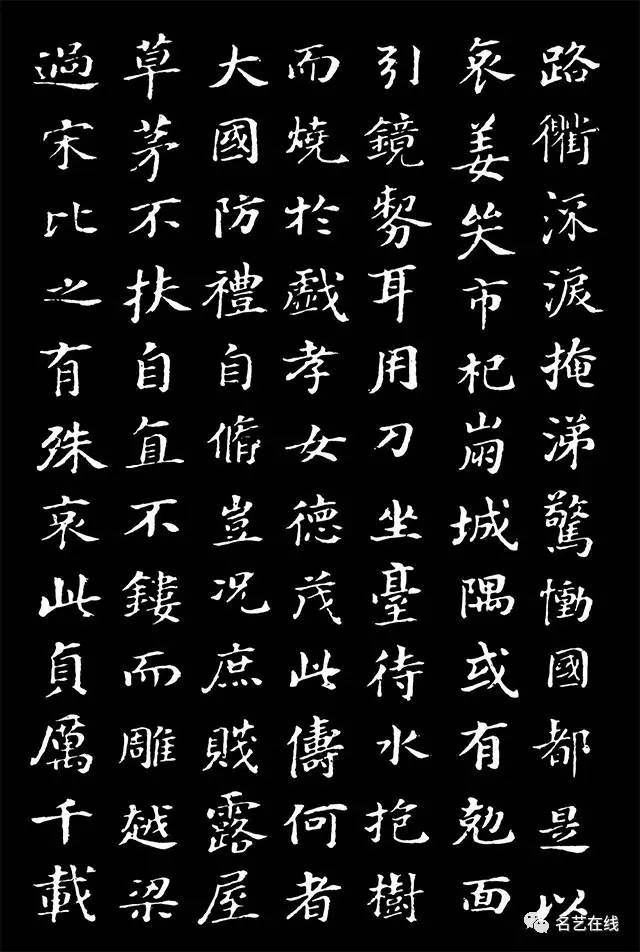 路衢深淚掩涕驚慟國都是以
哀姜哭市杞崩城隅或有尅面
引鏡剺耳用刀坐臺待水抱樹
而燒於戲孝女德茂此儔何者
大國防禮自脩豈況庶賤露屋
草茅不扶自直不鏤而雕越梁
過宋比之有殊哀此貞厲千載
名艺在线